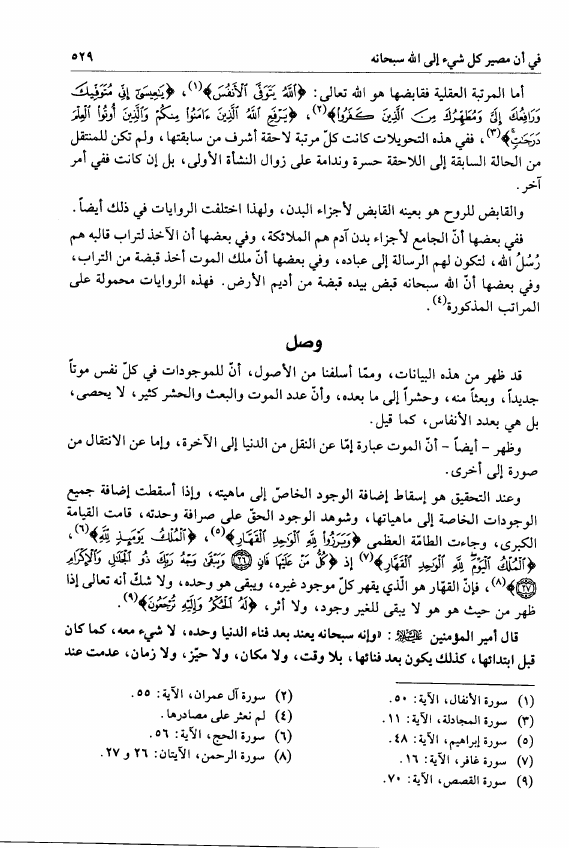 في أن مصير كل شيء إلى الله سبحانه ٥٢٩
أما المرتبة العقلية فقابضها هو الله تعالى: ﴿اللَّهُ يَتَوَفَّى الْأَنفُسَ﴾(١)، ﴿يَٰعِيسَىٰٓ إِنِّي مُتَوَفِّيكَ
وَرَافِعُكَ إِلَيَّ وَمُطَهِّرُكَ مِنَ الَّذِينَ كَفَرُوا﴾(٢)، ﴿يَرْفَعِ اللَّهُ الَّذِينَ ءَامَنُوا مِنكُمْ وَالَّذِينَ أُوتُوا الْعِلْمَ
دَرَجَٰتٍ﴾(٣)، ففي هذه التحويلات كانت كلّ مرتبة لاحقة أشرف من سابقتها، ولم تكن للمنتقل
من الحالة السابقة إلى اللاحقة حسرة وندامة على زوال النشأة الأولى، بل إن كانت ففي أمر
آخر.
والقابض للروح هو بعينه القابض لأجزاء البدن، ولهذا اختلفت الروايات في ذلك أيضاً.
ففي بعضها أنّ الجامع لأجزاء بدن آدم هم الملائكة، وفي بعضها أن الآخذ لتراب قالبه هم
رُسُلُ الله، لتكون لهم الرسالة إلى عباده، وفي بعضها أنّ ملك الموت أخذ قبضة من التراب،
وفي بعضها أنّ الله سبحانه قبض بيده قبضة من أديم الأرض. فهذه الروايات محمولة على
المراتب المذكورة(٤).
وصل
قد ظهر من هذه البيانات، وممّا أسلفنا من الأصول، أنّ للموجودات في كلّ نفس موتاً
جديداً، وبعثاً منه، وحشراً إلى ما بعده، وأنّ عدد الموت والبعث والحشر كثير، لا يحصى،
بل هي بعدد الأنفاس، كما قيل.
وظهر - أيضاً - أنّ الموت عبارة إمّا عن النقل من الدنيا إلى الآخرة، وإما عن الانتقال من
صورة إلى أخرى.
وعند التحقيق هو إسقاط إضافة الوجود الخاصّ إلى ماهيته، وإذا أسقطت إضافة جميع
الوجودات الخاصة إلى ماهياتها، وشوهد الوجود الحقّ على صرافة وحدته، قامت القيامة
الكبرى، وجاءت الطامّة العظمى ﴿وَبَرَزُوا لِلَّهِ الْوَٰحِدِ الْقَهَّارِ﴾(٥)، ﴿الْمُلْكُ يَوْمَئِذٍ لِلَّهِ﴾(٦)،
﴿الْمُلْكُ الْيَوْمَ لِلَّهِ الْوَٰحِدِ الْقَهَّارِ﴾(٧) إذ ﴿كُلُّ مَنْ عَلَيْهَا فَانٍ ٢٦ وَيَبْقَىٰ وَجْهُ رَبِّكَ ذُو الْجَلَٰلِ وَالْإِكْرَامِ
٢٧﴾(٨)، فإنّ القهّار هو الّذي يقهر كلّ موجود غيره، ويبقى هو وحده، ولا شكّ أنه تعالى إذا
ظهر من حيث هو هو لا يبقى للغير وجود، ولا أثر، ﴿لَهُ الْحُكْمُ وَإِلَيْهِ تُرْجَعُونَ﴾(٩).
قال أمير المؤمنين عليه السلام: «وإنه سبحانه يعند بعد فناء الدنيا وحده، لا شيء معه، كما كان
قبل ابتدائها، كذلك يكون بعد فنائها، بلا وقت، ولا مكان، ولا حيّز، ولا زمان، عدمت عند
(١) سورة الأنفال، الآية: ٥٠.
(٢) سورة آل عمران، الآية: ٥٥.
(٣) سورة المجادلة، الآية: ١١.
(٤) لم نعثر على مصادرها.
(٥) سورة إبراهيم، الآية: ٤٨.
(٦) سورة الحج، الآية: ٥٦.
(٧) سورة غافر، الآية: ١٦.
(٨) سورة الرحمن، الآيتان: ٢٦ و ٢٧.
(٩) سورة القصص، الآية: ٧٠.